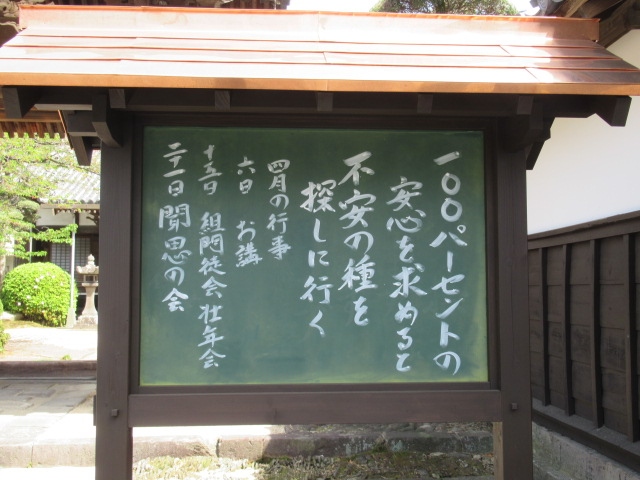 一〇〇パーセントの
安心を求めると
不安の種を
探しに行く
四月の行事
六日 お講
十五日 組門徒会壮年会
二十一日 聞思の会